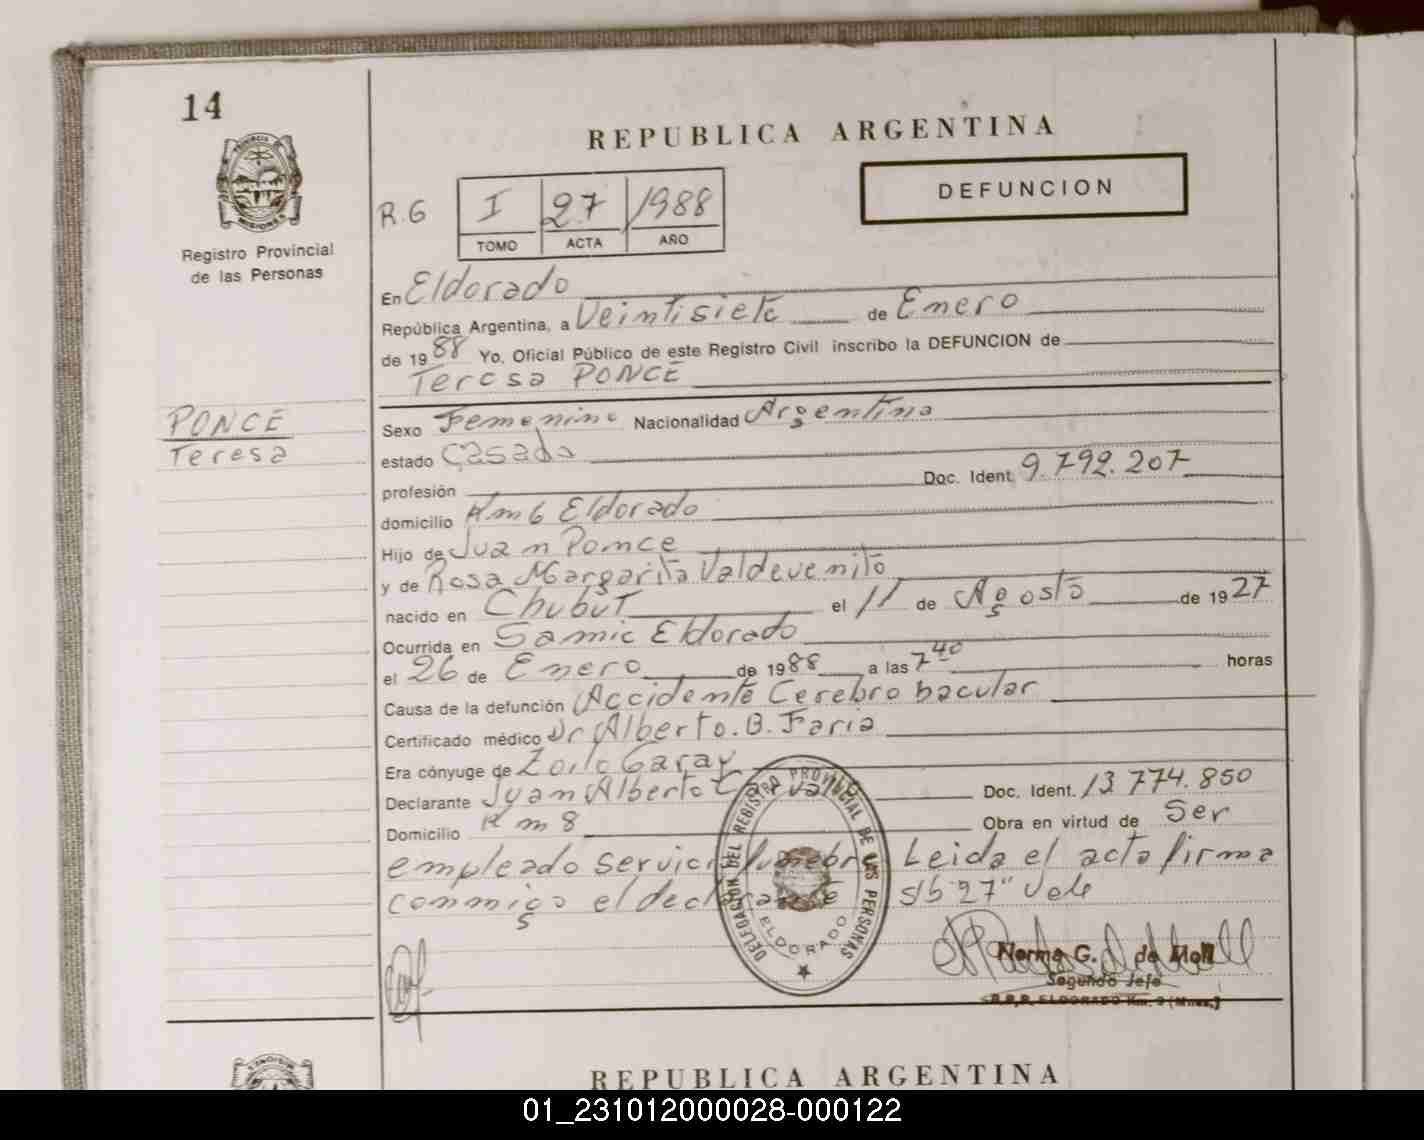 14
PROVINCIA DE
MISIONES
Registro Provincial
de las Personas
REPUBLICA ARGENTINA
DEFUNCION
R.G
I 27 1988
TOMO ACTA AÑO
En Eldorado
República Argentina, a Veintisiete de Enero
de 1988 Yo, Oficial Público de este Registro Civil inscribo la DEFUNCION de
Teresa PONCE
PONCE
Teresa
Sexo Femenino Nacionalidad Argentina
estado Casada
profesión Doc. Ident. 9.792.207
domicilio Km 6 Eldorado
Hijo de Juan Ponce
y de Rosa Margarita Valdevenito
nacido en Chubut el 11 de Agosto de 1927
Ocurrida en Samic Eldorado
el 26 de Enero de 1988 a las 7 40 horas
Causa de la defunción Accidente Cerebro bacular
Certificado médico Dr Alberto. B. Faria
Era cónyuge de Zoilo Garay
Declarante Juan Alberto Doc. Ident. 13 774.850
Domicilio Km 8 Obra en virtud de Ser
empleado servicio funebre Leida el acta firma
conmigo el declarante S/b 27" Vale
DELEGACION DEL REGISTRO PROVINCIAL DE LAS PERSONAS
ELDORADO
Norma G. de Moll
Segundo Jefe
R.P.P. ELDORADO Km. 9 (Mnes.)
REPUBLICA ARGENTINA
01_231012000028-000122